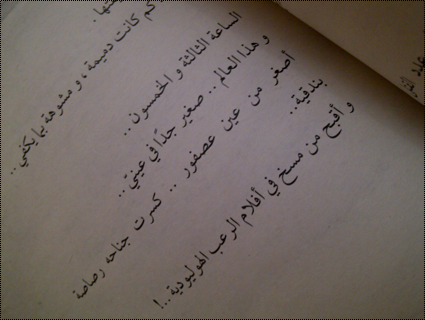 كم كانت دميمة، و مشوهة بما يكفي..
الساعة الثالثة و الخمسون..
و هذا العالم.. صغير جدًا في عينيّ..
أصغر من عين عصفور.. كسرت جناحه رصاصة
بندقية..
و أقبح من مسخ في أفلام الرعب الهوليودية..!